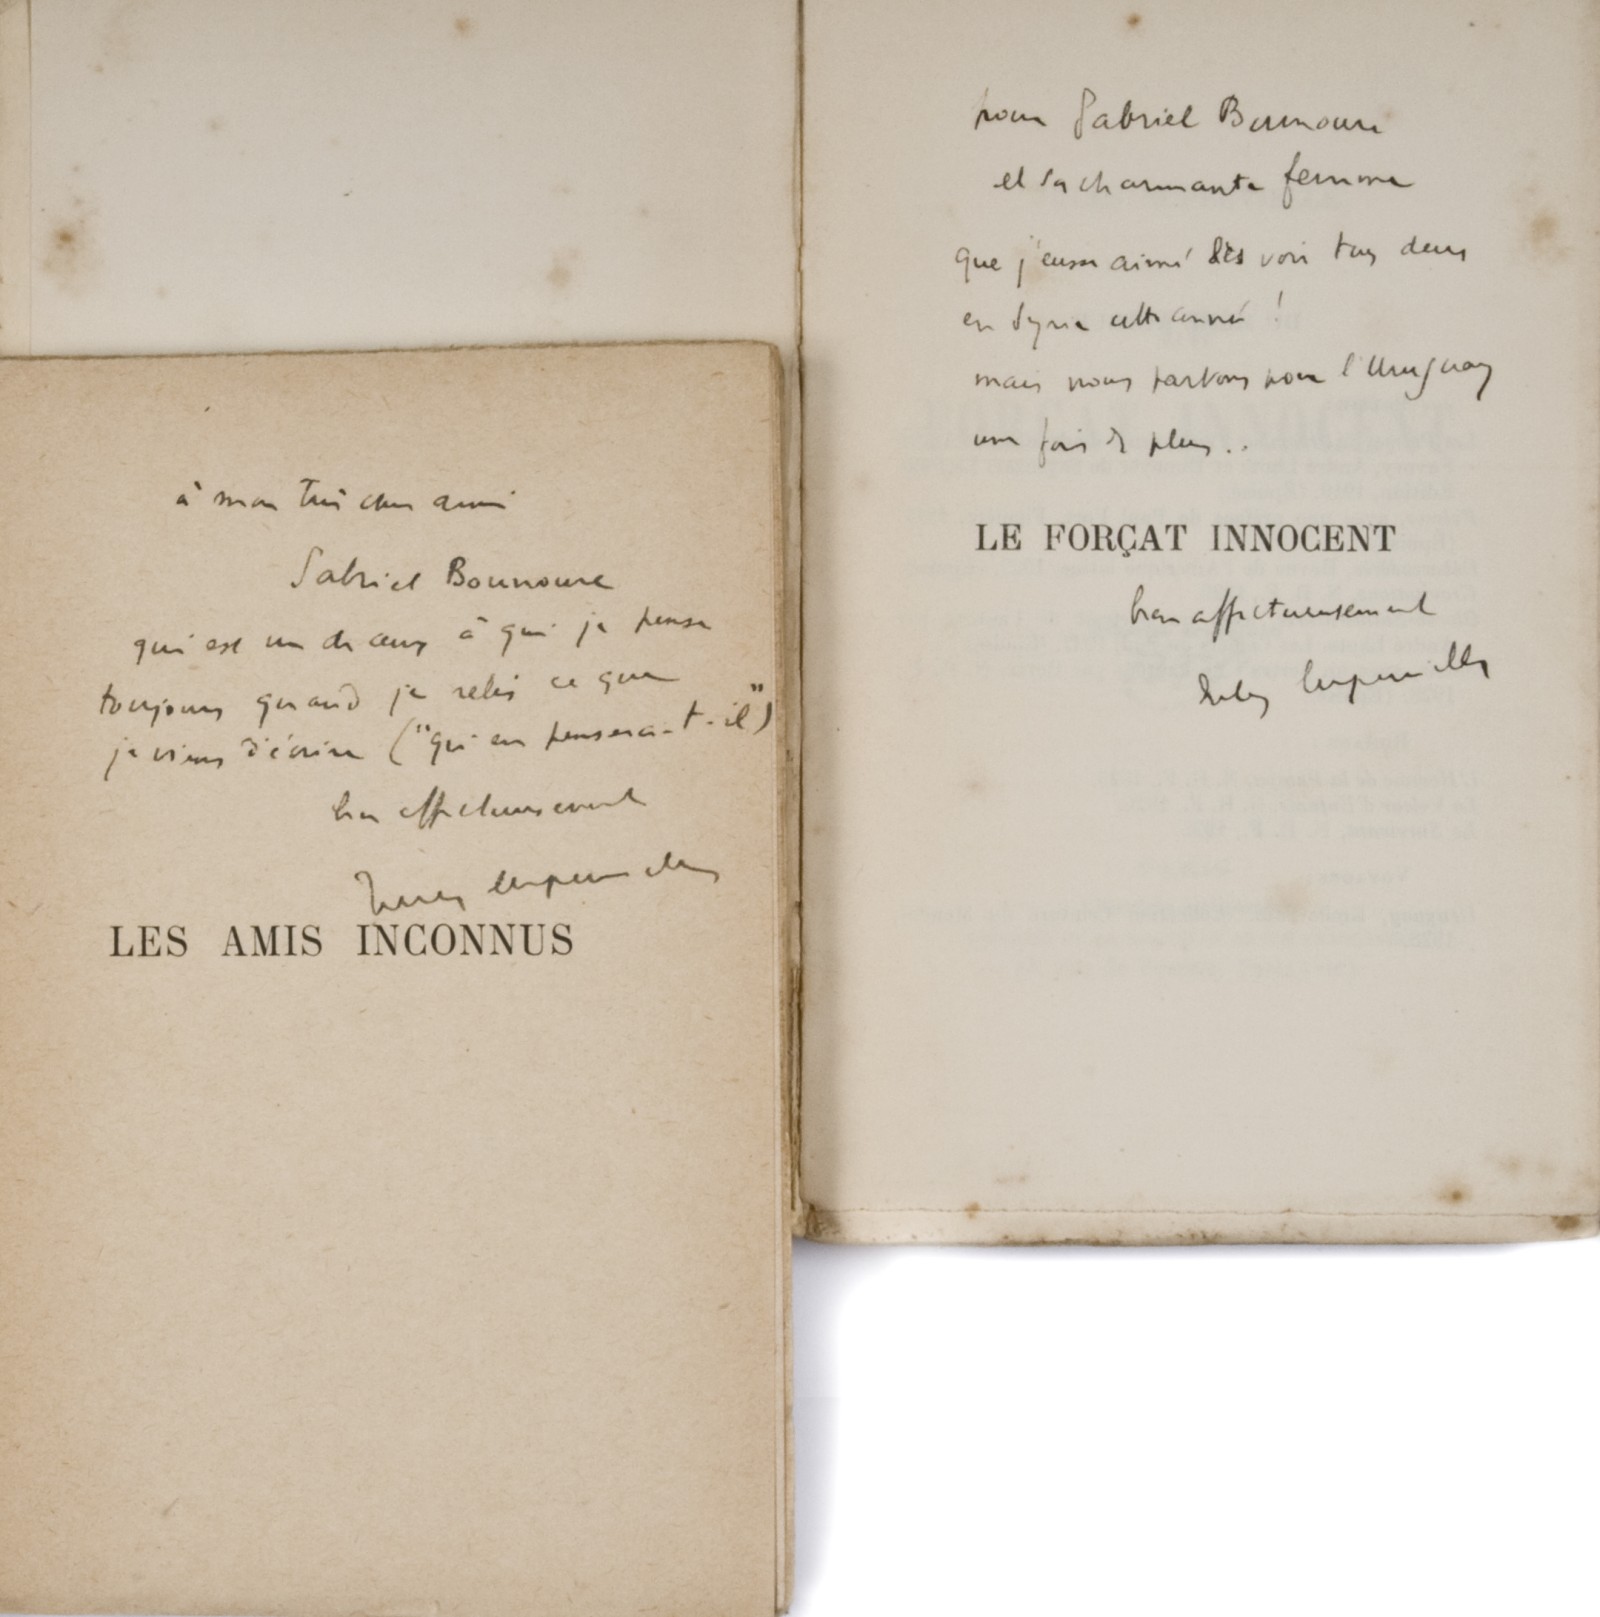 à mon très cher ami
Gabriel Bounoure
qui est un de ceux à qui je pense
toujours quand je relis ce que
je viens d'écrire ("qu'en pensera-t-il")
bien affectueusement
Jules Supervielle
LES AMIS INCONNUS
pour Gabriel Bounoure
et sa charmante femme
que j'eusse aimé les voir tous deux
en Syrie cette année !
mais nous partons pour l'Uruguay
une fois de plus..
LE FORÇAT INNOCENT
bien affectueusement
Jules Supervielle